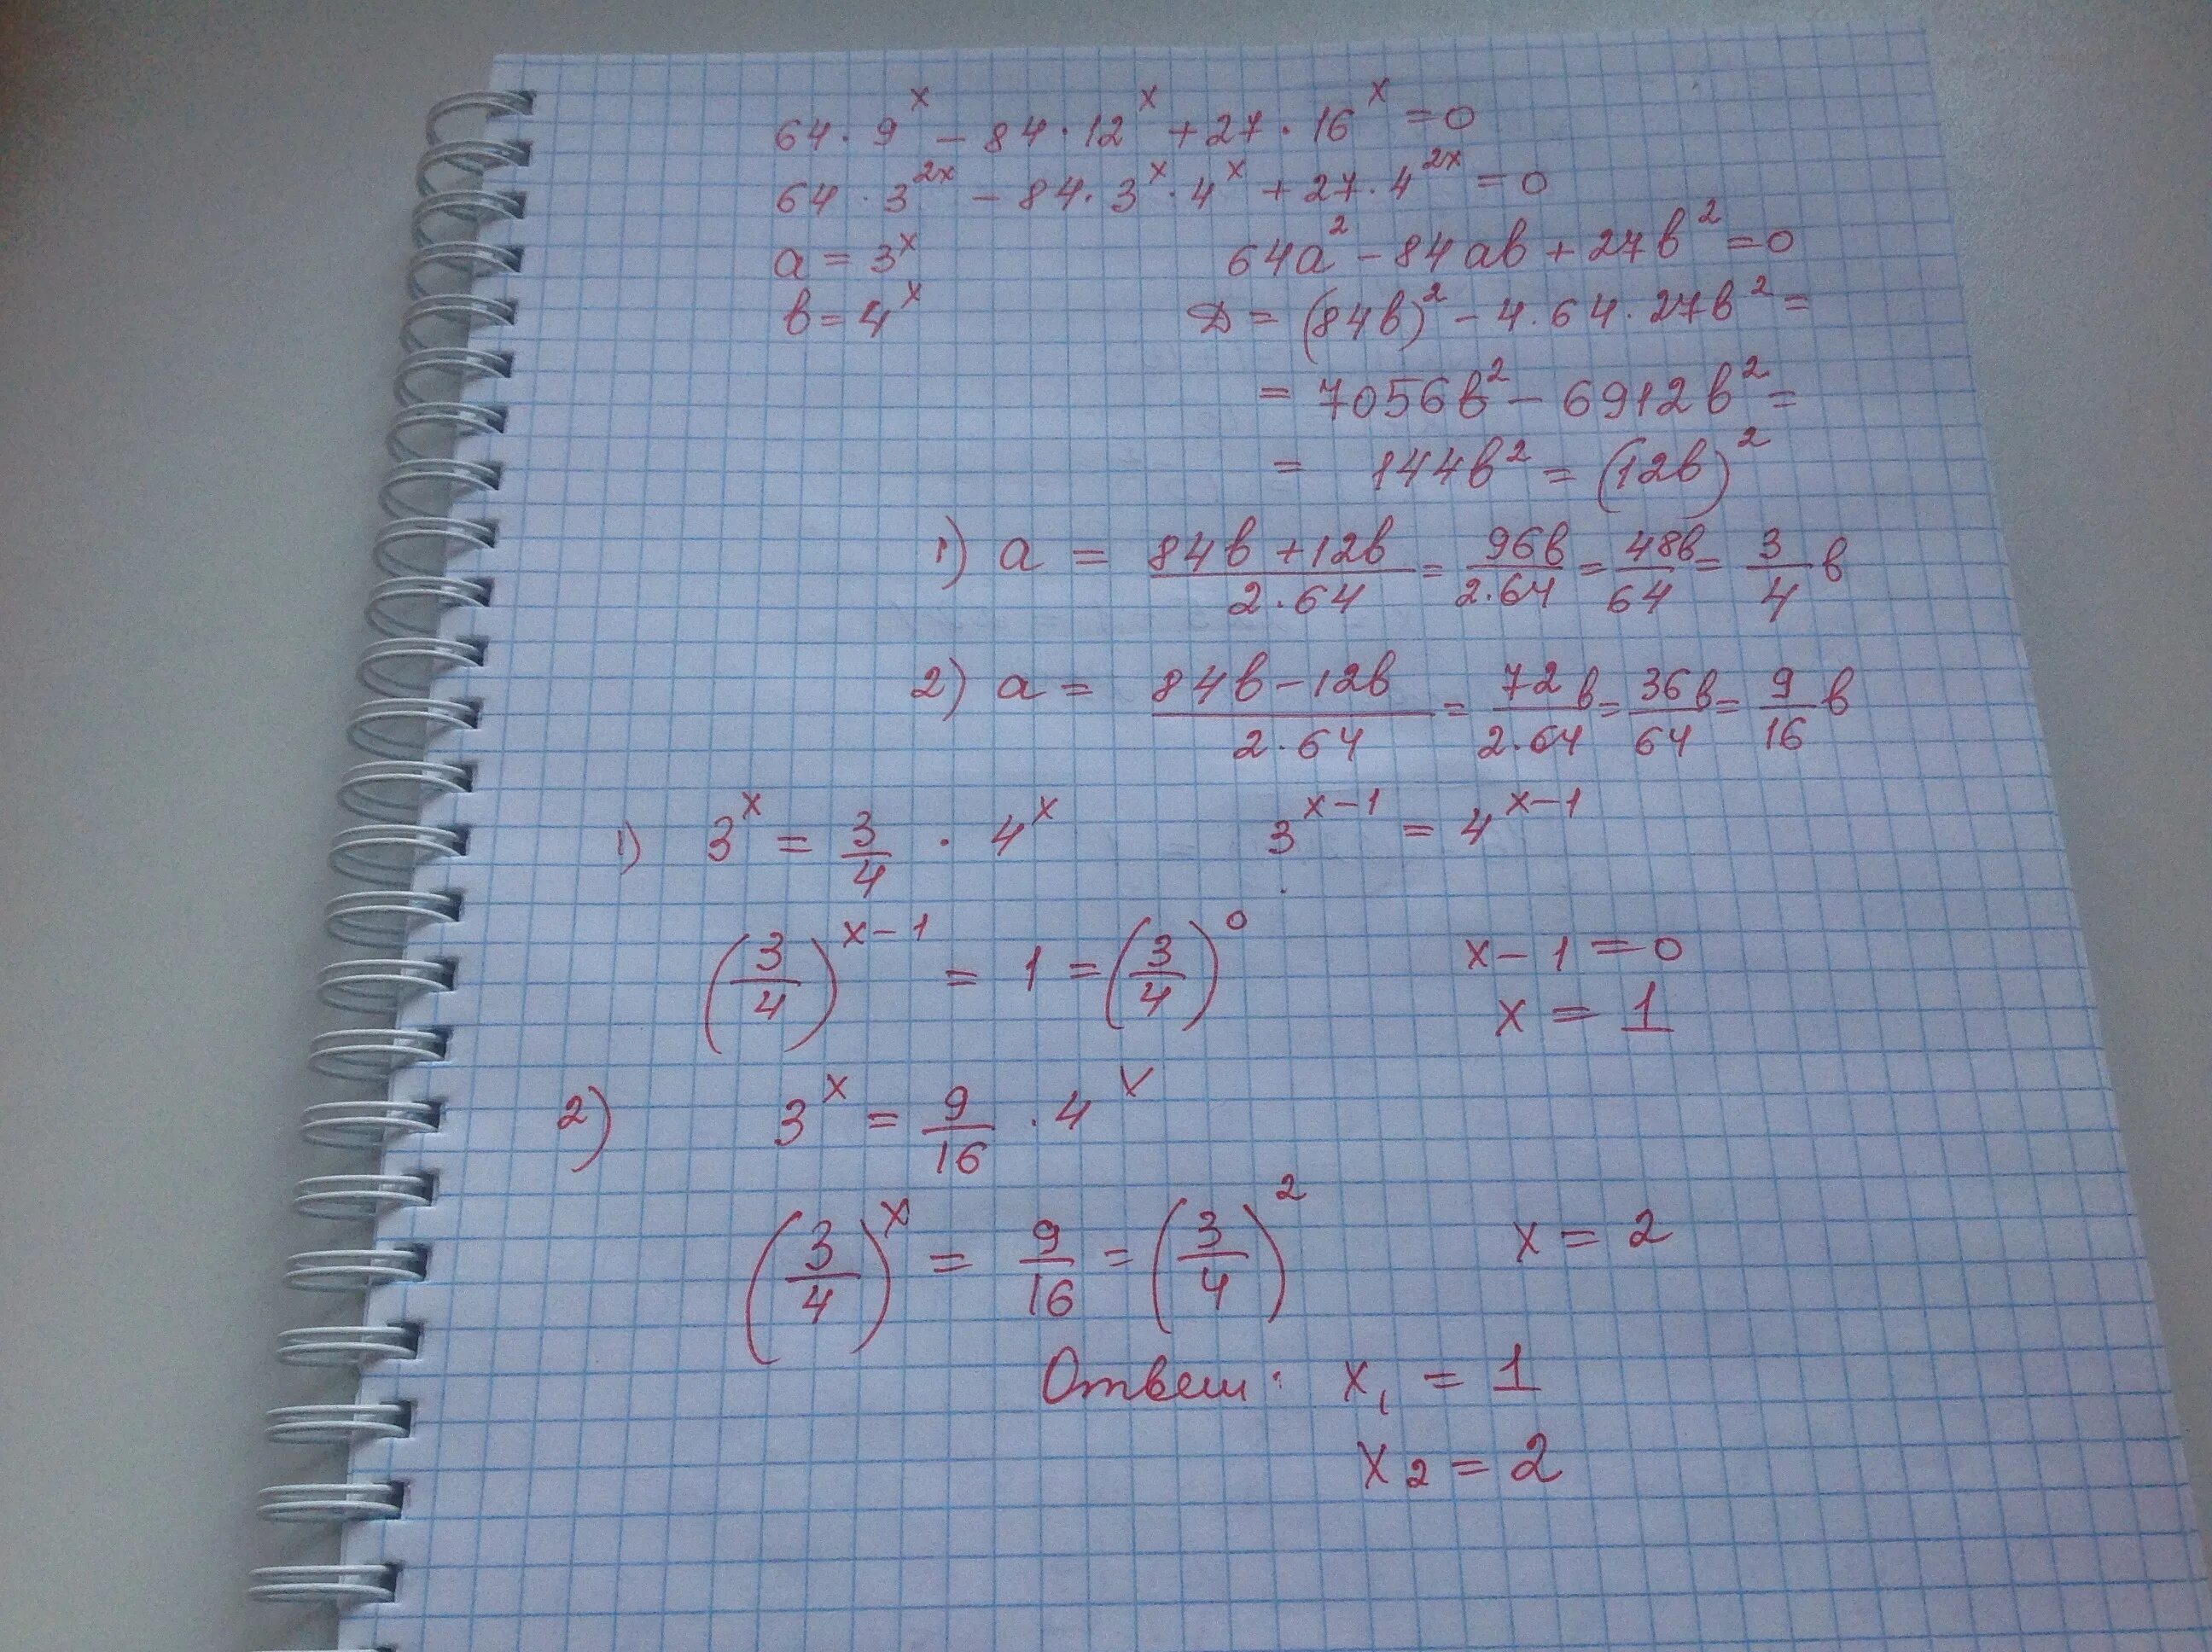 64 · 9^x − 84 · 12^x + 27 · 16^x = 0
64 · 3^{2x} − 84 · 3^x · 4^x + 27 · 4^{2x} = 0
a = 3^x    64a^2 − 84ab + 27b^2 = 0
b = 4^x    D = (84b)^2 − 4 · 64 · 27b^2 =
= 7056b^2 − 6912b^2 =
= 144b^2 = (12b)^2
1) a = (84b + 12b)/(2 · 64) = 96b/(2 · 64) = 48b/64 = 3/4 b
2) a = (84b − 12b)/(2 · 64) = 72b/(2 · 64) = 36b/64 = 9/16 b
1) 3^x = 3/4 · 4^x    3^{x−1} = 4^{x−1}
(3/4)^{x−1} = 1 = (3/4)^0    x − 1 = 0
x = 1
2) 3^x = 9/16 · 4^x
(3/4)^x = 9/16 = (3/4)^2    x = 2
Ответ: x₁ = 1
x₂ = 2